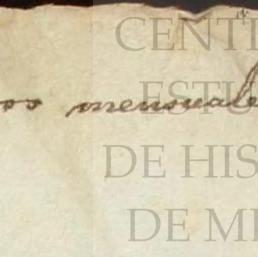 CENT
ESTU
os mensuale
DE HIS
DE ME